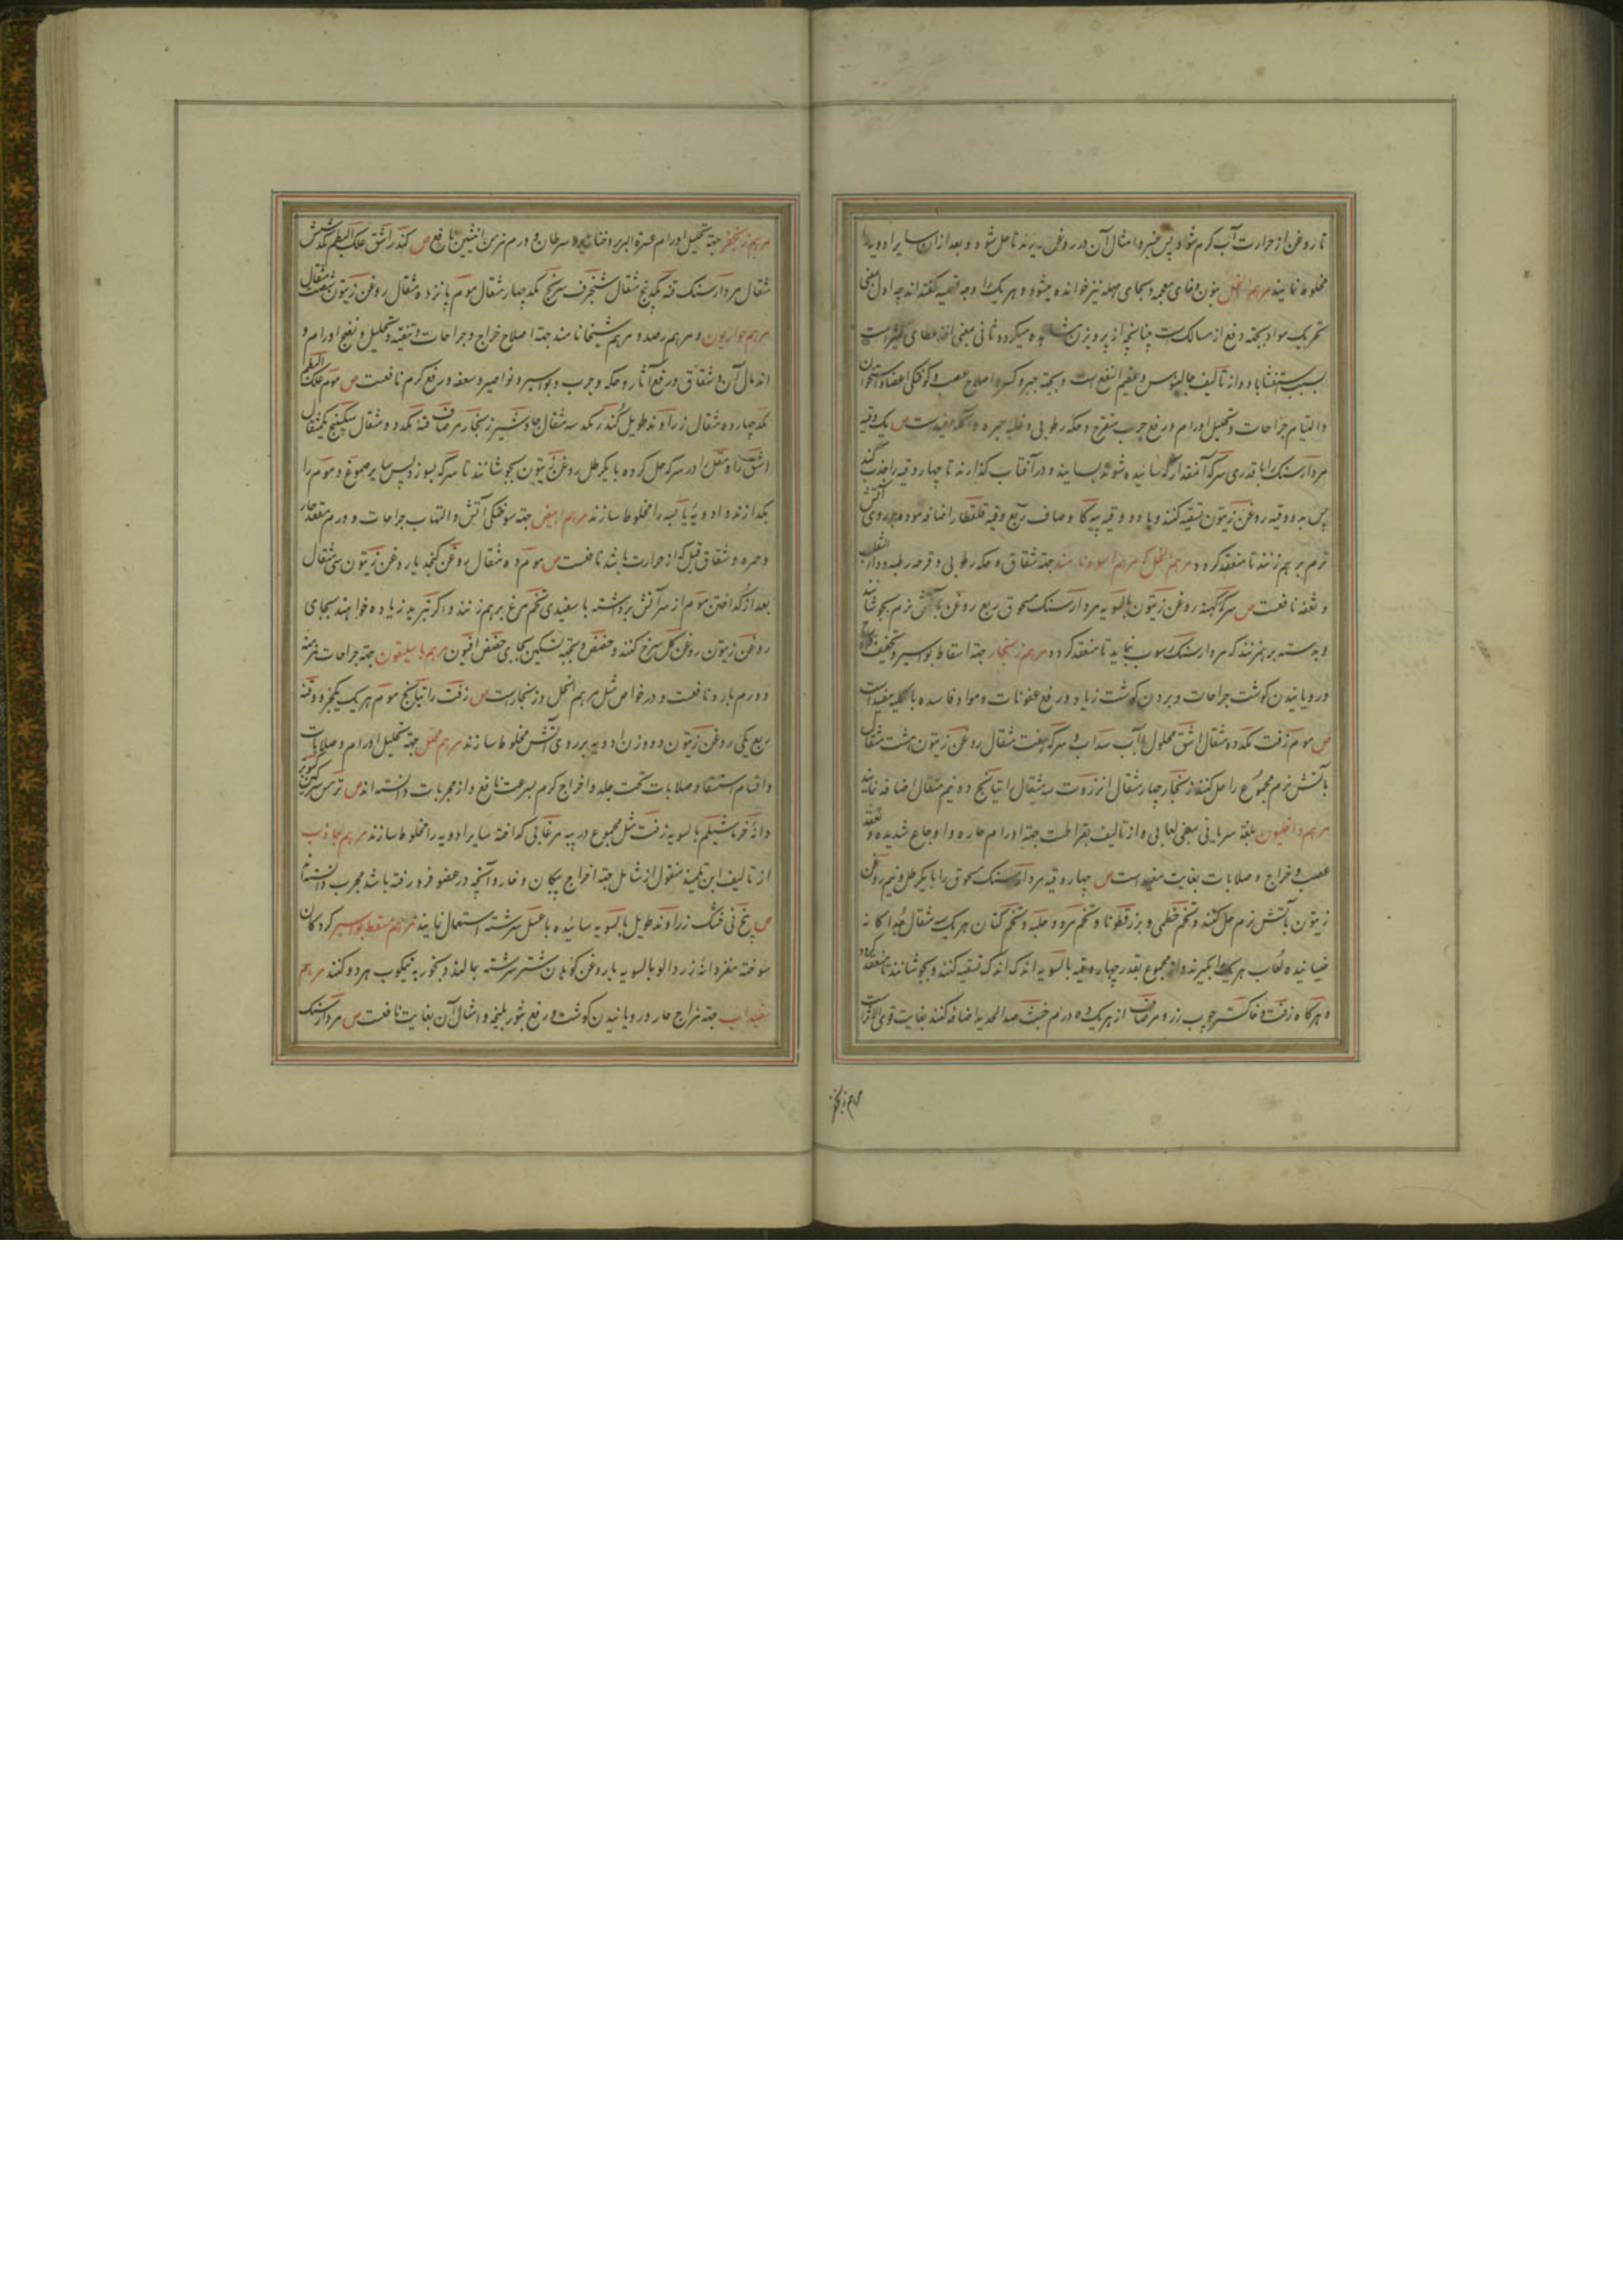 تا روغن از حرارت آب کرم شود پس عنبر و امثال آن در روغن ریزند تا حل شود و بعد از ان سایر ادویه را
مخلوط نمایند مرهم النخل بنون و خای معجمه و بجای مهمله نیز خوانده میشود و هر یک را وجه تسمیه کفته اند چه اول بمعنی
تحریک مواد بجهة دفع از مسالک است چنانچه از پرویزن میکردد و ثانی بمعنی عطای کثیر است
بسبب و از تألیف جالینوس و عظیم النفع است و بجهة جبر و کسر و اصلاح عصب و کوفتکی اعضا و استخوان
و التیام جراحات و تحلیل اورام و رفع جرب متقرح و حکه رطوبی و غلبه حمره و مفیدست ص یک وقیه
مردارسنک را با قدری سرکه آنقدر که سائیده شود بسایند و در آفتاب کذارند تا چهار وقیه را جذب کند
پس به دو وقیه روغن زیتون تسقیه کنند و با دو وقیه پیه کاو صاف ربع وقیه قلقطار اضافه نموده بر روی آتش
نرم بر هم زنند تا منعقد کردد مرهم الخل که مرهم اسود نامند جهة شقاق و حکه رطوبی و قرحه رطبه و داء الثعلب
و نافعست ص سرکه کهنه روغن زیتون بالسویه مردارسنک مسحوق ربع روغن با آتش نرم بجوشانند
و پیوسته بر هم زنند که مردارسنک رسوب ننماید تا منعقد کردد مرهم زنجار جهة اسقاط بواسیر و تجفیف
و رویانیدن کوشت جراحات و بردن کوشت زیاد و رفع عفونات و مواد فاسده بالکلیه مفید است
ص موم زفت مکد ده مثقال اشق محلول با آب سداب و سرکه هفت مثقال روغن زیتون هشت مثقال
با آتش نرم مجموع را حل کنند زنجار چهار مثقال انزروت سه مثقال راتیانج دو نیم مثقال اضافه نمایند
مرهم داخلیون بلغة سریانی بمعنی لعابی و از تألیف بقراطست جهة اورام حاره و اوجاع شدیده و تعقد
عصب و خراج و صلابات بغایت مفیدست ص چهار وقیه مردارسنک مسحوق را با یکرطل و نیم روغن
زیتون با آتش نرم حل کنند و تخم خطمی و بزرقطونا و تخم مرو و حلبه و تخم کتان هر یک سه مثقال جدا کانه
خیسانیده لعاب هر یک را بکیرند و از مجموع بقدر چهار وقیه بالسویه اندک اندک تسقیه کنند و بجوشانند تا منعقد کردد
و هرکاه زفت و خاکستر چوب رز و مرصاف از هر یک ده درم خبث الحدید اضافه کنند بغایت قوی الاثرست
مرهم زنجفر
مرهم زنجفر جهة تحلیل اورام عسرة البرء و خنازیر و سرطان و ورم مزمن انثیین نافع ص کندر اشق علک البطم مکد شش
مثقال مردارسنک قنه مکد پنج مثقال شنجرف سرنج مکد چهار مثقال موم پانزده مثقال روغن زیتون شصت مثقال
مرهم حواریون و مرهم رصد و مرهم شیخا نامند جهة اصلاح خراج و جراحات و تنقیه و تحلیل و نضج اورام و
اندمال آن و شقاق و رفع آثار و حکه و جرب و بواسیر و نواصیر و سعفه و رفع کرم نافعست ص موم علک البطم
مکد چهارده مثقال زراوند طویل کندر مکد سه مثقال جاوشیر زنجار مرصاف قنه مکد دو مثقال سکبینج یکمثقال
اشق را و مقل را در سرکه حل کرده با یکرطل روغن زیتون بجوشانند تا سرکه بسوزد پس سایر صموغ و موم را
بکدازند و ادویه یابسه را مخلوط سازند مرهم ابیض جهة سوختکی آتش و التهاب جراحات و ورم مقعد حار
و حمره و شقاق قبل که از حرارت باشد نافعست ص موم ده مثقال روغن کنجد یا روغن زیتون سی مثقال
بعد از کداختن موم از سر آتش برداشته با سفیدی تخم مرغ بر هم زنند و اکر تبرید زیاده خواهند بجای
روغن زیتون روغن کل سرخ کنند و حضض و بجهة تسکین بجای حضض افیون مرهم باسلیقون جهة جراحات مزمنه
و ورم بارد نافعست و در خواص مثل مرهم النخل و زنجارست ص زفت راتیانج موم هر یک یکجزو و قنه
ربع یکی روغن زیتون دو وزن ادویه بر روی آتش مخلوط سازند مرهم محلل جهة تحلیل اورام و صلابات
و اقسام استسقا و صلابات تحت جلد و اخراج کرم بسرعت نافع و از مجربات دانسته اند ص ترمس سرکین کبوتر
دانه خرما شیلم بالسویه زفت مثل مجموع در پیه مرغابی کداخته سایر ادویه را مخلوط سازند مرهم جاذب
از تالیف ابن تلمیذ منقول از شامل جهة اخراج پیکان و خار و آنچه در عضو فرو رفته باشد مجرب دانسته اند
ص بیخ نی خشک زراوند طویل بالسویه سائیده با عسل سرشته استعمال نمایند مرهم مسقط بواسیر کردکان
سوخته مغز دانه زردالو بالسویه با روغن کوهان شتر سرشته بمالند و بخور به نیمکوب هر دو کنند مرهم
سفیداب جهة مزاج حار و رویانیدن کوشت و رفع بثور بلخیه و امثال آن بغایت نافعست ص مردارسنک